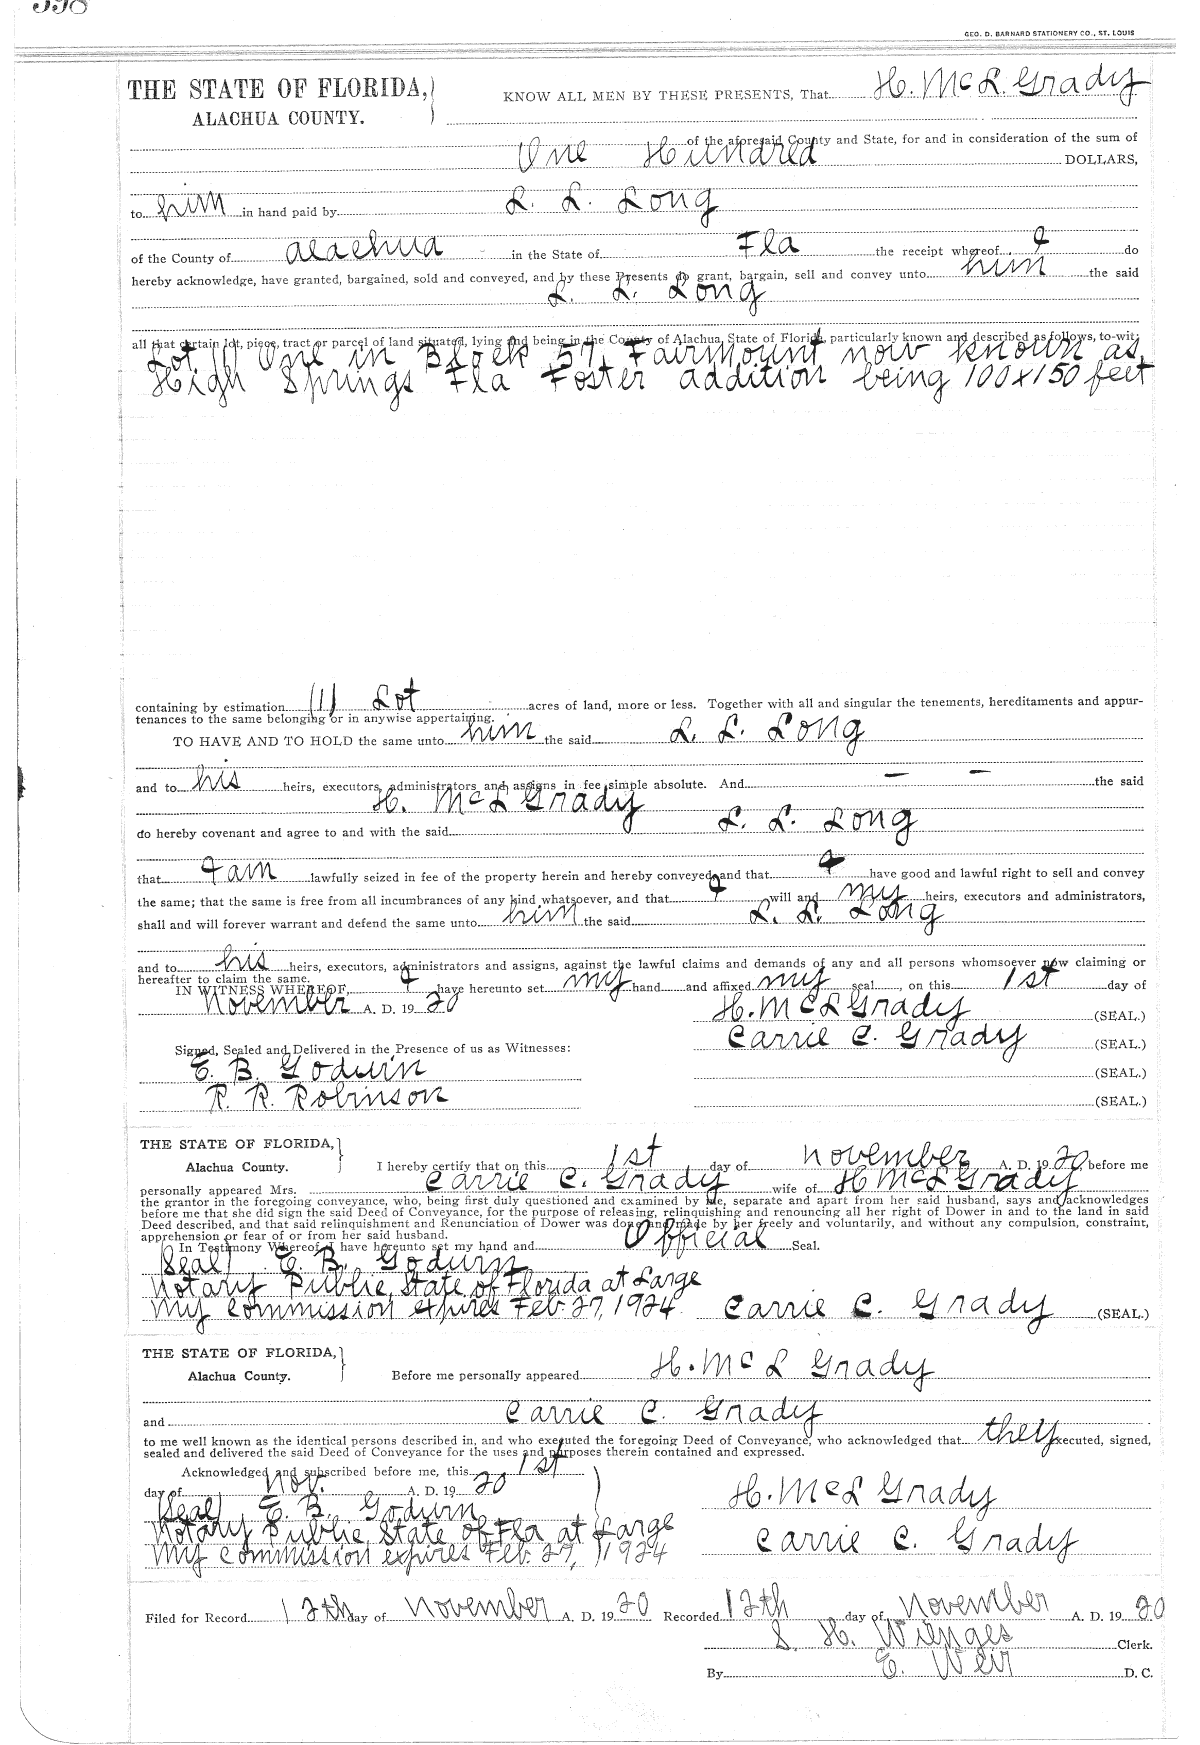 598
GEO. D. BARNARD STATIONERY CO., ST. LOUIS
THE STATE OF FLORIDA, KNOW ALL MEN BY THESE PRESENTS, That H. McL Grady
ALACHUA COUNTY.
of the aforesaid County and State, for and in consideration of the sum of
One Hundred DOLLARS,
to him in hand paid by L. L. Long
of the County of Alachua in the State of Fla the receipt whereof I do
hereby acknowledge, have granted, bargained, sold and conveyed, and by these Presents do grant, bargain, sell and convey unto him the said
L. L. Long
all that certain lot, piece, tract or parcel of land situated, lying and being in the County of Alachua, State of Florida, particularly known and described as follows, to-wit:
Lot (1) One in Block 57, Fairmount now known as
High Springs Fla Foster addition being 100x150 feet
containing by estimation (1) Lot acres of land, more or less. Together with all and singular the tenements, hereditaments and appur-
tenances to the same belonging or in anywise appertaining.
TO HAVE AND TO HOLD the same unto him the said L. L. Long
and to his heirs, executors, administrators and assigns in fee simple absolute. And — — the said
H. McL Grady
do hereby covenant and agree to and with the said L. L. Long
that I am lawfully seized in fee of the property herein and hereby conveyed and that I have good and lawful right to sell and convey
the same; that the same is free from all incumbrances of any kind whatsoever, and that I will and my heirs, executors and administrators,
shall and will forever warrant and defend the same unto him the said L. L. Long
and to his heirs, executors, administrators and assigns, against the lawful claims and demands of any and all persons whomsoever now claiming or
hereafter to claim the same.
IN WITNESS WHEREOF, I have hereunto set my hand and affixed my seal, on this 1st day of
November A. D. 1920 H. McL Grady (SEAL.)
Carrie C. Grady (SEAL.)
Signed, Sealed and Delivered in the Presence of us as Witnesses:
E. B. Godwin (SEAL.)
R. R. Robinson (SEAL.)
THE STATE OF FLORIDA,
Alachua County. I hereby certify that on this 1st day of November A. D. 1920 before me
personally appeared Mrs. Carrie C. Grady wife of H McL Grady
the grantor in the foregoing conveyance, who, being first duly questioned and examined by me, separate and apart from her said husband, says and acknowledges
before me that she did sign the said Deed of Conveyance, for the purpose of releasing, relinquishing and renouncing all her right of Dower in and to the land in said
Deed described, and that said relinquishment and Renunciation of Dower was done and made by her freely and voluntarily, and without any compulsion, constraint,
apprehension or fear of or from her said husband.
In Testimony Whereof, I have hereunto set my hand and Official Seal.
(Seal) E. B. Godwin
Notary Public, State of Florida at Large
My commission expires Feb. 27, 1924. Carrie C. Grady (SEAL.)
THE STATE OF FLORIDA,
Alachua County. Before me personally appeared H. McL Grady
and Carrie C. Grady
to me well known as the identical persons described in, and who executed the foregoing Deed of Conveyance, who acknowledged that they executed, signed,
sealed and delivered the said Deed of Conveyance for the uses and purposes therein contained and expressed.
Acknowledged and subscribed before me, this 1st
day of Nov. A. D. 1920
(Seal) E. B. Godwin H. McL Grady
Notary Public, State of Fla at Large
My commission expires Feb. 27, 1924 Carrie C. Grady
Filed for Record 12th day of November A. D. 1920 Recorded 12th day of November A. D. 1920
S. H. Wienges Clerk.
By E. Weir D. C.